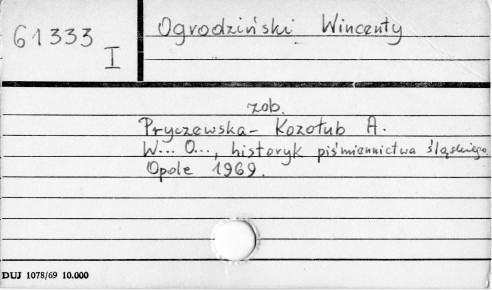 61333
I
Ogrodziński Wincenty
zob.
Pryczewska-Kozołub A.
W... O..., historyk piśmiennictwa śląskiego.
Opole 1969.
DUJ 1078/69 10.000